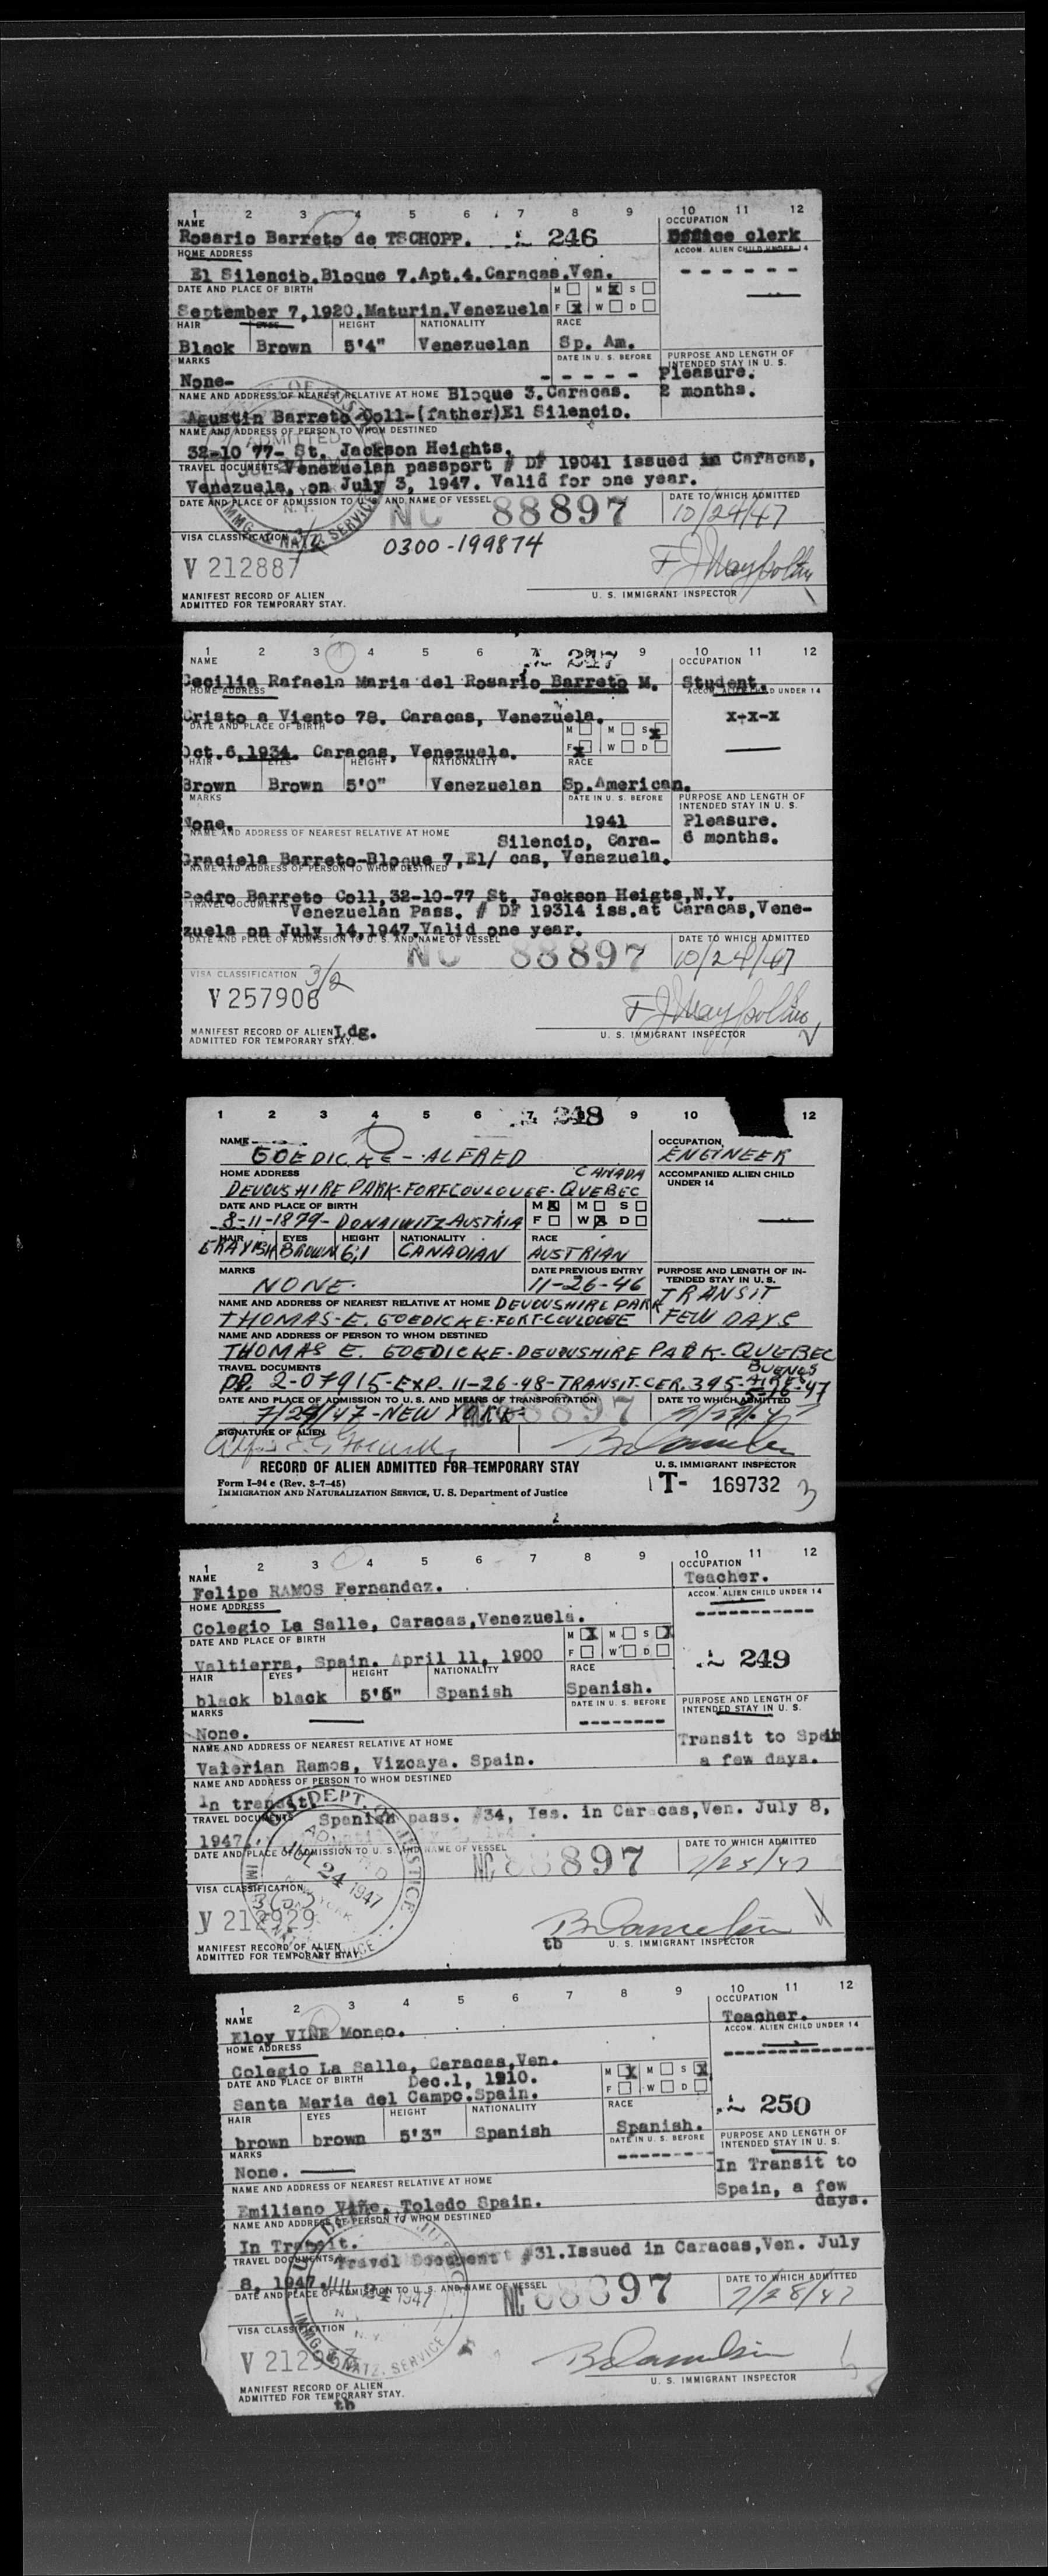 1 2 3 4 5 6 7 8 9 10 11 12
NAME OCCUPATION
Rosario Barreto de TSCHOPP. 246 Office clerk
HOME ADDRESS ACCOM. ALIEN CHILD UNDER 14
El Silencio.Bloque 7.Apt.4.Caracas.Ven. - - - - - -
DATE AND PLACE OF BIRTH M M X S
September 7,1920.Maturin.Venezuela F X W D
HAIR EYES HEIGHT NATIONALITY RACE
Black Brown 5'4" Venezuelan Sp. Am.
MARKS DATE IN U. S. BEFORE PURPOSE AND LENGTH OF INTENDED STAY IN U. S.
None- - - - - - Pleasure.
NAME AND ADDRESS OF NEAREST RELATIVE AT HOME Bloque 3.Caracas. 2 months.
Agustin Barreto Coll-(father)El Silencio.
NAME AND ADDRESS OF PERSON TO WHOM DESTINED
32-10 77- St. Jackson Heights.
TRAVEL DOCUMENTS Venezuelan passport # DF 19041 issued in Caracas,
Venezuela, on July 3, 1947. Valid for one year.
DATE AND PLACE OF ADMISSION TO U. S. AND NAME OF VESSEL DATE TO WHICH ADMITTED
NC 88897 10/24/47
VISA CLASSIFICATION 3/2 0300-199874
V 212887
MANIFEST RECORD OF ALIEN U. S. IMMIGRANT INSPECTOR
ADMITTED FOR TEMPORARY STAY.
ADMITTED
N. Y.
IMMG. & NATZ. SERVICE
1 2 3 4 5 6 7 8 9 10 11 12
NAME 247 OCCUPATION
Cecilia Rafaela Maria del Rosario Barreto M. Student.
HOME ADDRESS ACCOM. ALIEN CHILD UNDER 14
Cristo a Viento 78. Caracas, Venezuela. X-X-X
DATE AND PLACE OF BIRTH M M S X
Oct.6,1934. Caracas, Venezuela. F X W D
HAIR EYES HEIGHT NATIONALITY RACE
Brown Brown 5'0" Venezuelan Sp.American.
MARKS DATE IN U. S. BEFORE PURPOSE AND LENGTH OF INTENDED STAY IN U. S.
None. 1941 Pleasure.
NAME AND ADDRESS OF NEAREST RELATIVE AT HOME Silencio, Cara- 6 months.
Graciela Barreto-Bloque 7,El/ cas, Venezuela.
NAME AND ADDRESS OF PERSON TO WHOM DESTINED
Pedro Barreto Coll,32-10-77 St. Jackson Heigts,N.Y.
TRAVEL DOCUMENTS Venezuelan Pass. # DF 19314 iss.at Caracas,Vene-
zuela on July 14,1947.Valid one year.
DATE AND PLACE OF ADMISSION TO U. S. AND NAME OF VESSEL DATE TO WHICH ADMITTED
NC 88897 10/24/47
VISA CLASSIFICATION 3/2
V 257906
MANIFEST RECORD OF ALIEN Ldg. U. S. IMMIGRANT INSPECTOR
ADMITTED FOR TEMPORARY STAY.
1 2 3 4 5 6 7 248 9 10 12
NAME OCCUPATION
GOEDICKE - ALFRED ENGINEER
HOME ADDRESS CANADA ACCOMPANIED ALIEN CHILD UNDER 14
DEVOUSHIRE PARK-FORTCOULOUGE-QUEBEC
DATE AND PLACE OF BIRTH M X M S
8-11-1879- DONAIWITZ-AUSTRIA F W X D
HAIR EYES HEIGHT NATIONALITY RACE
GRAYISH BROWN 6,1 CANADIAN AUSTRIAN
MARKS DATE PREVIOUS ENTRY PURPOSE AND LENGTH OF INTENDED STAY IN U. S.
NONE. 11-26-46 TRANSIT
NAME AND ADDRESS OF NEAREST RELATIVE AT HOME DEVOUSHIRE PARK
THOMAS-E. GOEDICKE-FORT-COULOUGE FEW DAYS
NAME AND ADDRESS OF PERSON TO WHOM DESTINED
THOMAS E. GOEDICKE-DEVOUSHIRE PARK-QUEBEC
TRAVEL DOCUMENTS BUENOS
PP. 2-07915-EXP. 11-26-48-TRANSIT.CER.395-AIRES 5-16-47
DATE AND PLACE OF ADMISSION TO U. S. AND MEANS OF TRANSPORTATION DATE TO WHICH ADMITTED
7/24/47-NEW YORK- NC 88897
SIGNATURE OF ALIEN
RECORD OF ALIEN ADMITTED FOR TEMPORARY STAY U. S. IMMIGRANT INSPECTOR
Form I-94 c (Rev. 3-7-45) T- 169732 3
IMMIGRATION AND NATURALIZATION SERVICE, U. S. Department of Justice
1 2 3 4 5 6 7 8 9 10 11 12
NAME OCCUPATION
Felipe RAMOS Fernandez. Teacher.
HOME ADDRESS ACCOM. ALIEN CHILD UNDER 14
Colegio La Salle, Caracas,Venezuela. ------------
DATE AND PLACE OF BIRTH M X M S X
Valtierra, Spain. April 11, 1900 F W D 249
HAIR EYES HEIGHT NATIONALITY RACE
black black 5'6" Spanish Spanish.
MARKS DATE IN U. S. BEFORE PURPOSE AND LENGTH OF INTENDED STAY IN U. S.
None. -------- Transit to Spain
NAME AND ADDRESS OF NEAREST RELATIVE AT HOME
Valerian Ramos, Vizcaya. Spain. a few days.
NAME AND ADDRESS OF PERSON TO WHOM DESTINED
In transit.
TRAVEL DOCUMENTS Spanish pass. #34, Iss. in Caracas,Ven. July 8,
1947.
DATE AND PLACE OF ADMISSION TO U. S. AND NAME OF VESSEL DATE TO WHICH ADMITTED
NC 88897 7/25/47
VISA CLASSIFICATION
V 212929
MANIFEST RECORD OF ALIEN tb U. S. IMMIGRANT INSPECTOR
ADMITTED FOR TEMPORARY STAY.
JUL 24 1947
1 2 3 4 5 6 7 8 9 10 11 12
NAME OCCUPATION
Eloy VIÑE Monco. Teacher.
HOME ADDRESS ACCOM. ALIEN CHILD UNDER 14
Colegio La Salle, Caracas,Ven. ---------------
DATE AND PLACE OF BIRTH Dec.1, 1910. M X M S X
Santa Maria del Campo.Spain. F W D 250
HAIR EYES HEIGHT NATIONALITY RACE
brown brown 5'3" Spanish Spanish.
MARKS DATE IN U. S. BEFORE PURPOSE AND LENGTH OF INTENDED STAY IN U. S.
None. --------- In Transit to
NAME AND ADDRESS OF NEAREST RELATIVE AT HOME Spain, a few
Emiliano Viñe. Toledo Spain. days.
NAME AND ADDRESS OF PERSON TO WHOM DESTINED
In Transit.
TRAVEL DOCUMENTS Travel Document #31.Issued in Caracas,Ven. July
8, 1947.
DATE AND PLACE OF ADMISSION TO U. S. AND NAME OF VESSEL DATE TO WHICH ADMITTED
NC 88897 7/28/47
VISA CLASSIFICATION
MANIFEST RECORD OF ALIEN U. S. IMMIGRANT INSPECTOR
ADMITTED FOR TEMPORARY STAY.
tb
IMMG. & NATZ. SERVICE